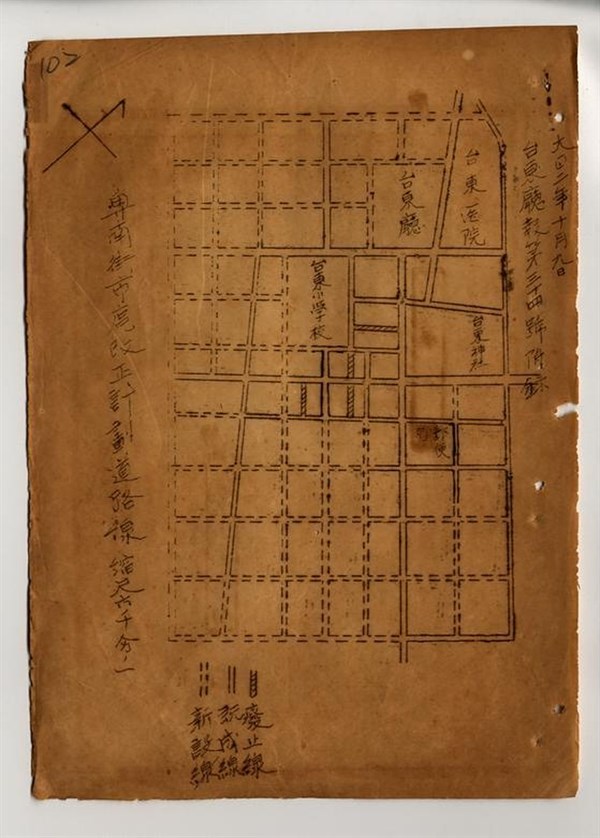 102
大正二年十月九日
台東廳報第三十四號附錄
台東医院
台東廳
台東小学校
台東神社
郵便
卑南街市區改正計劃道路線 縮尺六千分ノ一
廢止線
既成線
新設線